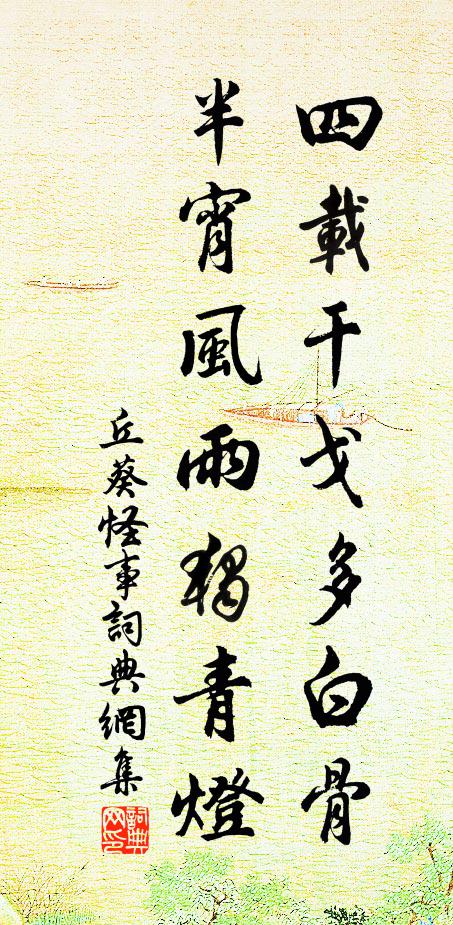 四載干戈多白骨
半宵風雨獨青燈
丘葵怪事詞典網集
詞典網印